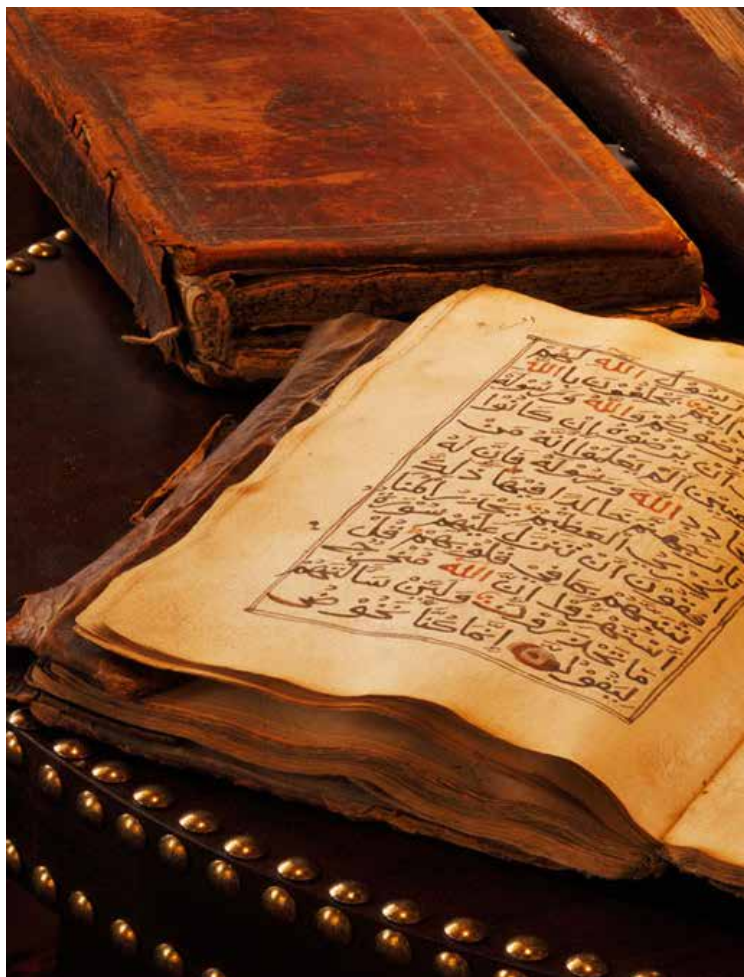 رَسُولَ اللهِ لَهُمْ
اَلِيمٌ يَحْلِفُونَ بِاللهِ
لِيُرْضُوكُمْ وَاللهُ وَرَسُولُهُ
أَن يُرْضُوهُ إِن كَانُوا
مُؤْمِنِينَ أَلَمْ يَعْلَمُوا أَنَّهُ مَن
يُحَادِدِ اللهَ وَرَسُولَهُ فَأَنَّ لَهُ
نَارَ جَهَنَّمَ خَالِدًا فِيهَا ذَلِكَ
الْخِزْيُ الْعَظِيمُ يَحْذَرُ الْمُنَا
فِقُونَ أَن تُنَزَّلَ عَلَيْهِمْ سُورَةٌ
تُنَبِّئُهُم بِمَا فِي قُلُوبِهِمْ قُلِ
اسْتَهْزِءُوا إِنَّ اللهَ مُخْرِجٌ
مَا تَحْذَرُونَ وَلَئِن سَأَلْتَهُمْ
لَيَقُولُنَّ إِنَّمَا كُنَّا نَخُوضُ